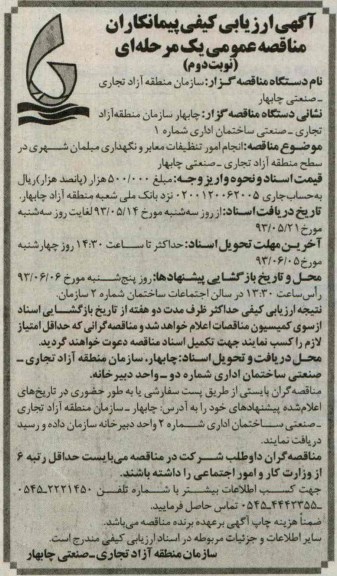 آگهی ارزیابی کیفی پیمانکاران
مناقصه عمومی یک مرحله‌ای
(نوبت دوم)
نام دستگاه مناقصه گزار: سازمان منطقه آزاد تجاری
ـ صنعتی چابهار
نشانی دستگاه مناقصه گزار: چابهار سازمان منطقه آزاد
تجاری ـ صنعتی ساختمان اداری شماره ۱
موضوع مناقصه: انجام امور تنظیفات معابر و نگهداری مبلمان شهری در
سطح منطقه آزاد تجاری ـ صنعتی چابهار
قیمت اسناد و نحوه واریز وجه: مبلغ ۵۰۰/۰۰۰ هزار (پانصد هزار) ریال
به حساب جاری ۰۲۰۰۱۲۰۰۶۲۰۰۵ نزد بانک ملی شعبه منطقه آزاد چابهار.
تاریخ دریافت اسناد: از روز سه‌شنبه مورخ ۹۳/۰۵/۱۴ لغایت روز سه‌شنبه
مورخ ۹۳/۰۵/۲۱
آخرین مهلت تحویل اسناد: حداکثر تا ساعت ۱۴:۳۰ روز چهارشنبه
مورخ ۹۳/۰۶/۰۵
محل و تاریخ بازگشایی پیشنهادها: روز پنج‌شنبه مورخ ۹۳/۰۶/۰۶
رأس ساعت ۱۳:۳۰ در سالن اجتماعات ساختمان شماره ۲ سازمان.
نتیجه ارزیابی کیفی حداکثر ظرف مدت دو هفته از تاریخ بازگشایی اسناد
از سوی کمیسیون مناقصات اعلام خواهد شد و مناقصه‌گرانی که حداقل امتیاز
لازم را کسب نمایند جهت تکمیل اسناد مناقصه دعوت خواهند گردید.
محل دریافت و تحویل اسناد: چابهار، سازمان منطقه آزاد تجاری ـ
صنعتی ساختمان اداری شماره دو ـ واحد دبیرخانه.
مناقصه‌گران بایستی از طریق پست سفارشی یا به طور حضوری در تاریخ‌های
اعلام‌شده پیشنهادهای خود را به آدرس: چابهار ـ سازمان منطقه آزاد تجاری
ـ صنعتی ساختمان اداری شماره ۲ واحد دبیرخانه سازمان داده و رسید
دریافت نمایند.
مناقصه‌گران داوطلب شرکت در مناقصه می‌بایست حداقل رتبه ۶
از وزارت کار و امور اجتماعی را داشته باشند.
جهت کسب اطلاعات بیشتر با شماره تلفن ۲۲۲۱۴۵۰ـ۰۵۴۵
ـ ۴۴۴۲۳۵۵ـ۰۵۴۵ تماس حاصل فرمایید.
ضمناً هزینه چاپ آگهی برعهده برنده مناقصه می‌باشد.
سایر اطلاعات و جزئیات مربوطه در اسناد ارزیابی کیفی مندرج است.
سازمان منطقه آزاد تجاری ـ صنعتی چابهار